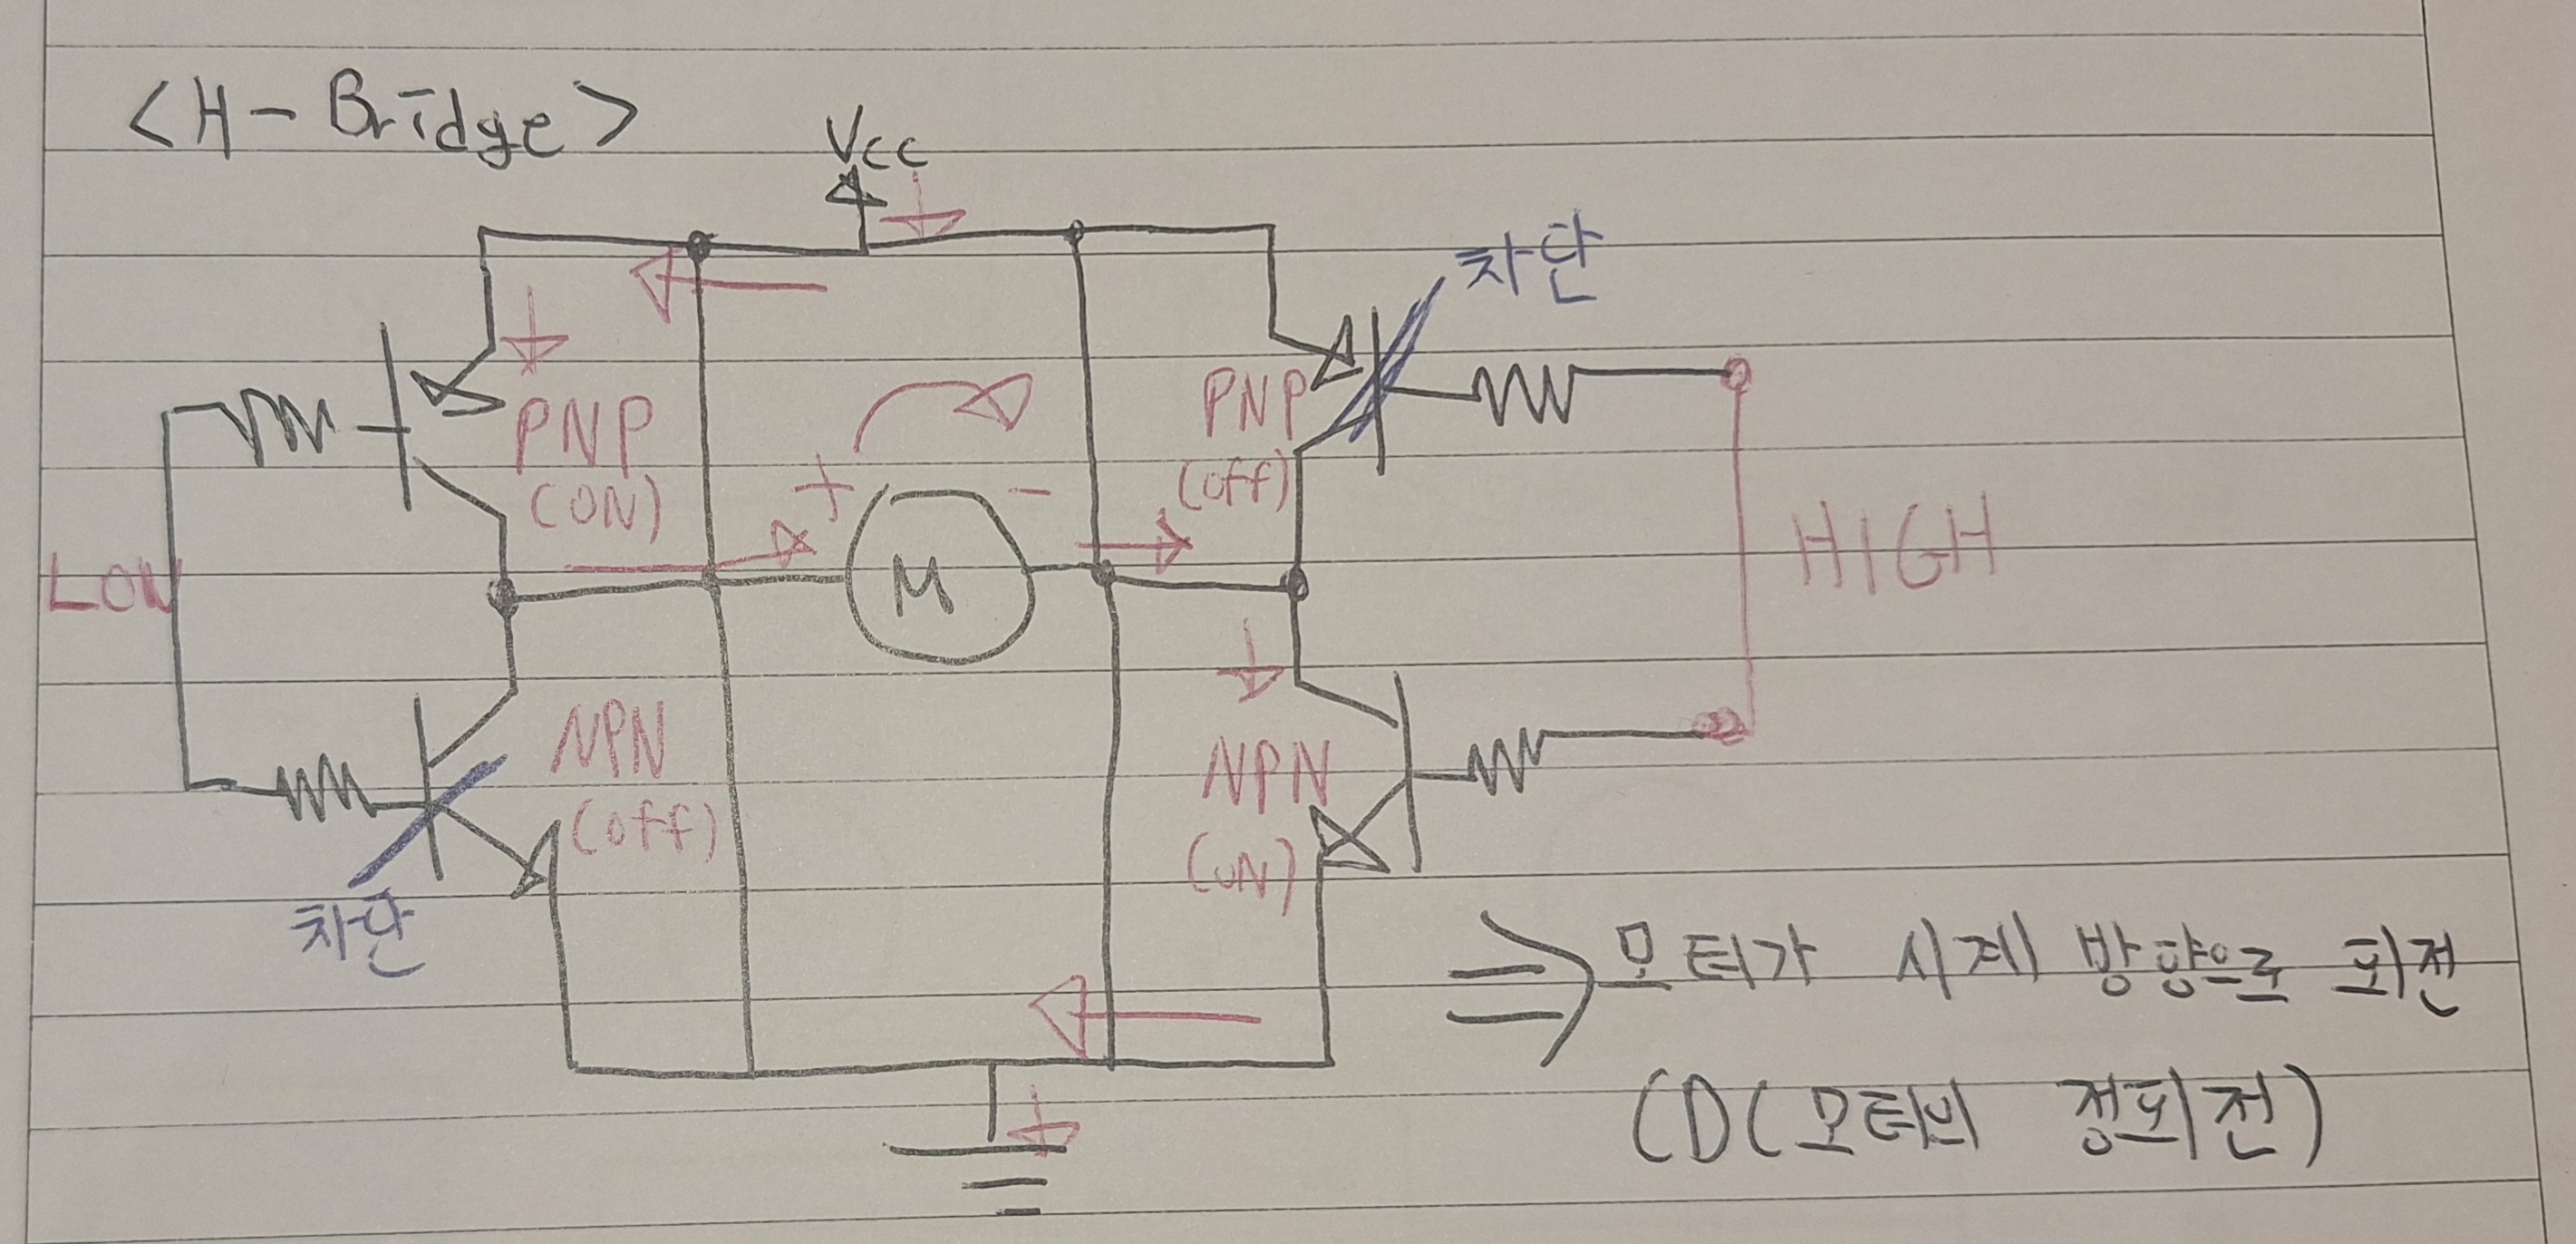 <H-Bridge>
Vcc
차단
PNP
(ON)
PNP
(off)
+
-
M
LOW
HIGH
NPN
(off)
NPN
(ON)
차단
⇒ 모터가 시계 방향으로 회전
(DC모터의 정회전)